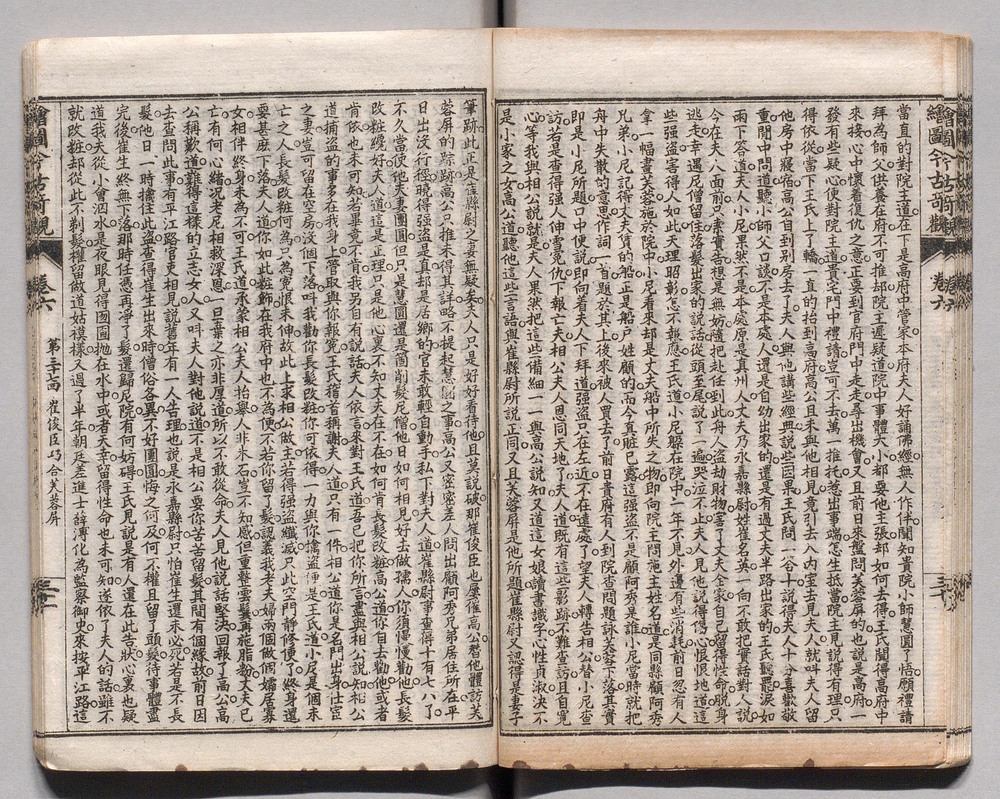 繪圖今古奇觀
卷六
當直的對院主道在下是高府中管家本府夫人好誦佛經無人作伴聞知貴院小師慧圓了悟願禮請
拜為師父供養在府不可推却院主遲疑道院中事體大小都要他主張却如何去得王氏聞得高府中
來接心中懷着復仇之意正要到官府門中走走尋出機會又且前日來盤問芙蓉屏的也說是高府一
發有些疑心便對院主道貴宅門中禮請豈可不去萬一推托惹出事端怎生抵當院主見說得有理只
得依從當下王氏上了轎一直的抬到高府高公且未與他相見竟引去入內室去見夫人就叫夫人留
他房中寢宿高公自到别房去了夫人與他講些經典說些因果王氏問一答十說得夫人十分喜歡敬
重閒中問道聽小師父口談不是本處人還是自幼出家的還是有過丈夫半路出家的王氏聽罷淚如
雨下答道夫人小尼果然不是本處原是真州人丈夫乃永嘉縣尉姓崔名英一向不敢把實話對人說
今在夫人面前只索實告想是無妨隨把赴任到此舟人盗劫財物害了丈夫全家自己留得性命脱身
逃走幸遇尼僧留住落髮出家的說話從頭至尾說了一遍哭泣不止夫人見他說得傷心恨恨地道這
些强盗害得人如此天理昭彰怎不報應王氏道小尼躲在院中一年不見外邊有些消耗前日忽有人
拿一幅畫芙蓉施於院中小尼看來却是丈夫船中所失之物即向院主問施主姓名道是同縣顧阿秀
兄弟小尼記得丈夫賃的船正是船戶姓顧的而今真贓已露這强盗不是顧阿秀是誰小尼當時就把
舟中失散的意思作詞一首題於其上後來被人買去了前日貴府有人到院查問題詠芙蓉下落其實
即是小尼所題口中便說即向着夫人下拜道强盗只在左近不在遠處了望夫人轉告相公替小尼查
訪若是查得强人伸雪冤仇下報亡夫相公夫人恩同天地了夫人道既有這些影跡不難查訪且自寬
心等我與相公說就是夫人果然把這些備細一一與高公說知又道這女娘讀書識字心性貞淑決不
是小家之女高公道聽他這些言語與崔縣尉所說正同又且芙蓉屏是他所題崔縣尉又認得是妻子
筆跡此正是崔縣尉之妻無疑矣夫人只是好好看待他且莫說破那崔俊臣也屢催高公替他體訪芙
蓉屏的踪跡高公只推未得其詳略不提起慧圓之事高公又密密差人問出顧阿秀兄弟居住所在平
日出沒行徑曉得强盗是真却是居鄉的官未敢輕自動手私下對夫人道崔縣尉事查得十有七八了
不久當使他夫妻團圓但只是慧圓還是箇削髮尼僧他日如何相見好去做孺人你須慢慢勸他長髮
改粧纔好夫人道這是正理只是他心裏不知丈夫在不在如何肯長髮改粧高公道你自去勸他或者
肯依也未可知若畢竟不肯我另自有說話夫人依言來對王氏道吾已把你所言盡與相公說知相公
道捕盗的事多在我身上管取與你報冤王氏稽首稱謝夫人道只有一件相公道你是名門出身仕宦
之妻豈可留在空房没個下落叫我勸你長髮改粧你可依得一力與你擒盗便是王氏道小尼是個未
亡之人長髮改粧何為只為冤恨未伸故此上求相公做主若得强盗殲滅只此空門靜修便了終身還
要甚麽下落夫人道你如此粧飾在我府中也不為便不若你留了髮認義我老夫婦兩個做個孀居寡
女相伴終身未為不可王氏道承蒙相公夫人抬舉人非木石豈不知感但重整雲鬟再施脂粉丈夫已
亡有何心緒况老尼相救深恩一旦棄之亦非厚道所以不敢從命夫人見他說話堅決回報了高公高
公稱歎道難得這樣的立志女人又叫夫人對他說道不是相公要你苦苦留髮其間有個緣故前日因
去查問此事有平江路官吏相見說舊年有一人告理也說是永嘉縣尉只怕崔生還未必死若是不長
髮他日一時擒住此盗查得崔生出來時僧俗各異不好團圓悔之何及何不權且留了頭髮待事體盡
完後崔生終無下落那時任憑再凈了髮還歸尼院有何妨碍王氏見說是有人還在此告狀心裏也疑
道我夫從小會泅水是夜眼見得囫圇抛在水中或者天幸留得性命也未可知遂依了夫人的話雖不
就改粧却從此不剃髮權留做道姑模樣又過了半年朝廷差進士薛溥化為監察御史來按平江路這
繪圖今古奇觀
卷六
崔俊臣巧合芙蓉屏